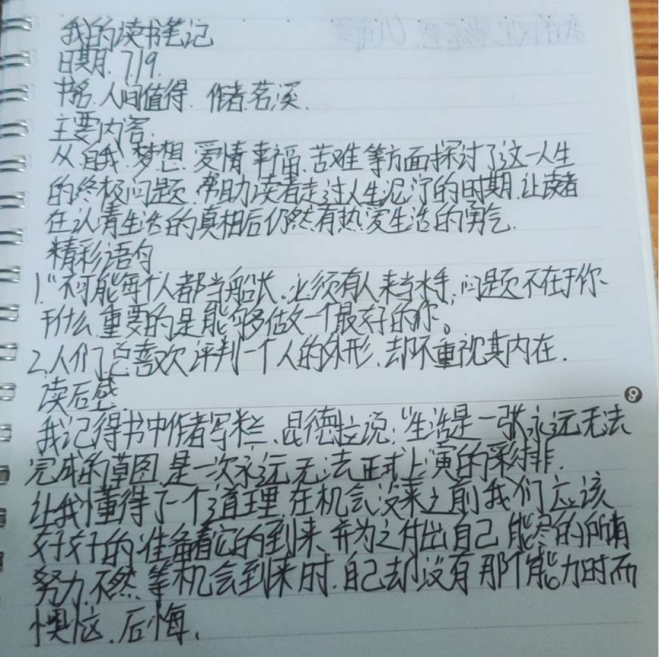 我的读书笔记
日期.7/9.
书名.人间值得.作者.茗溪.
主要内容.
从自我.梦想.爱情.幸福.苦难等方面.探讨了这一人生
的终极问题.帮助读者走过人生泥泞的时期.让读者
在认清生活的真相后仍然有热爱生活的勇气.
精彩语句
1."不可能每个人都当船长.必须有人来当水手.问题不在于你
干什么.重要的是能够做一个最好的你。
2.人们总喜欢评判一个人的外形.却不重视其内在.
读后感
我记得书中作者写米兰.昆德拉说:"生活是一张永远无法
完成的草图.是一次永远无法正式上演的彩排.
让我懂得了一个道理.在机会没来之前.我们应该
好好的准备着它的到来.并为之付出自己能尽的所有
努力.不然.等机会到来时.自己却没有那个能力时而
懊恼.后悔.
9